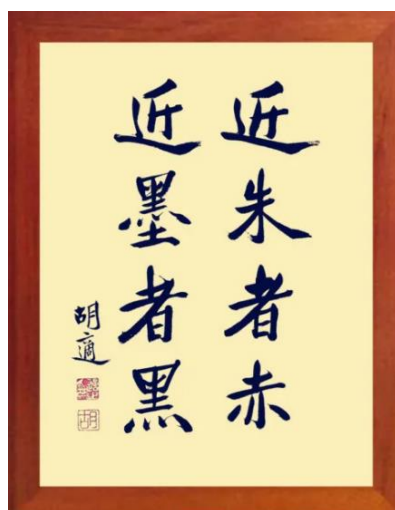 近朱者赤
近墨者黑
胡適
胡